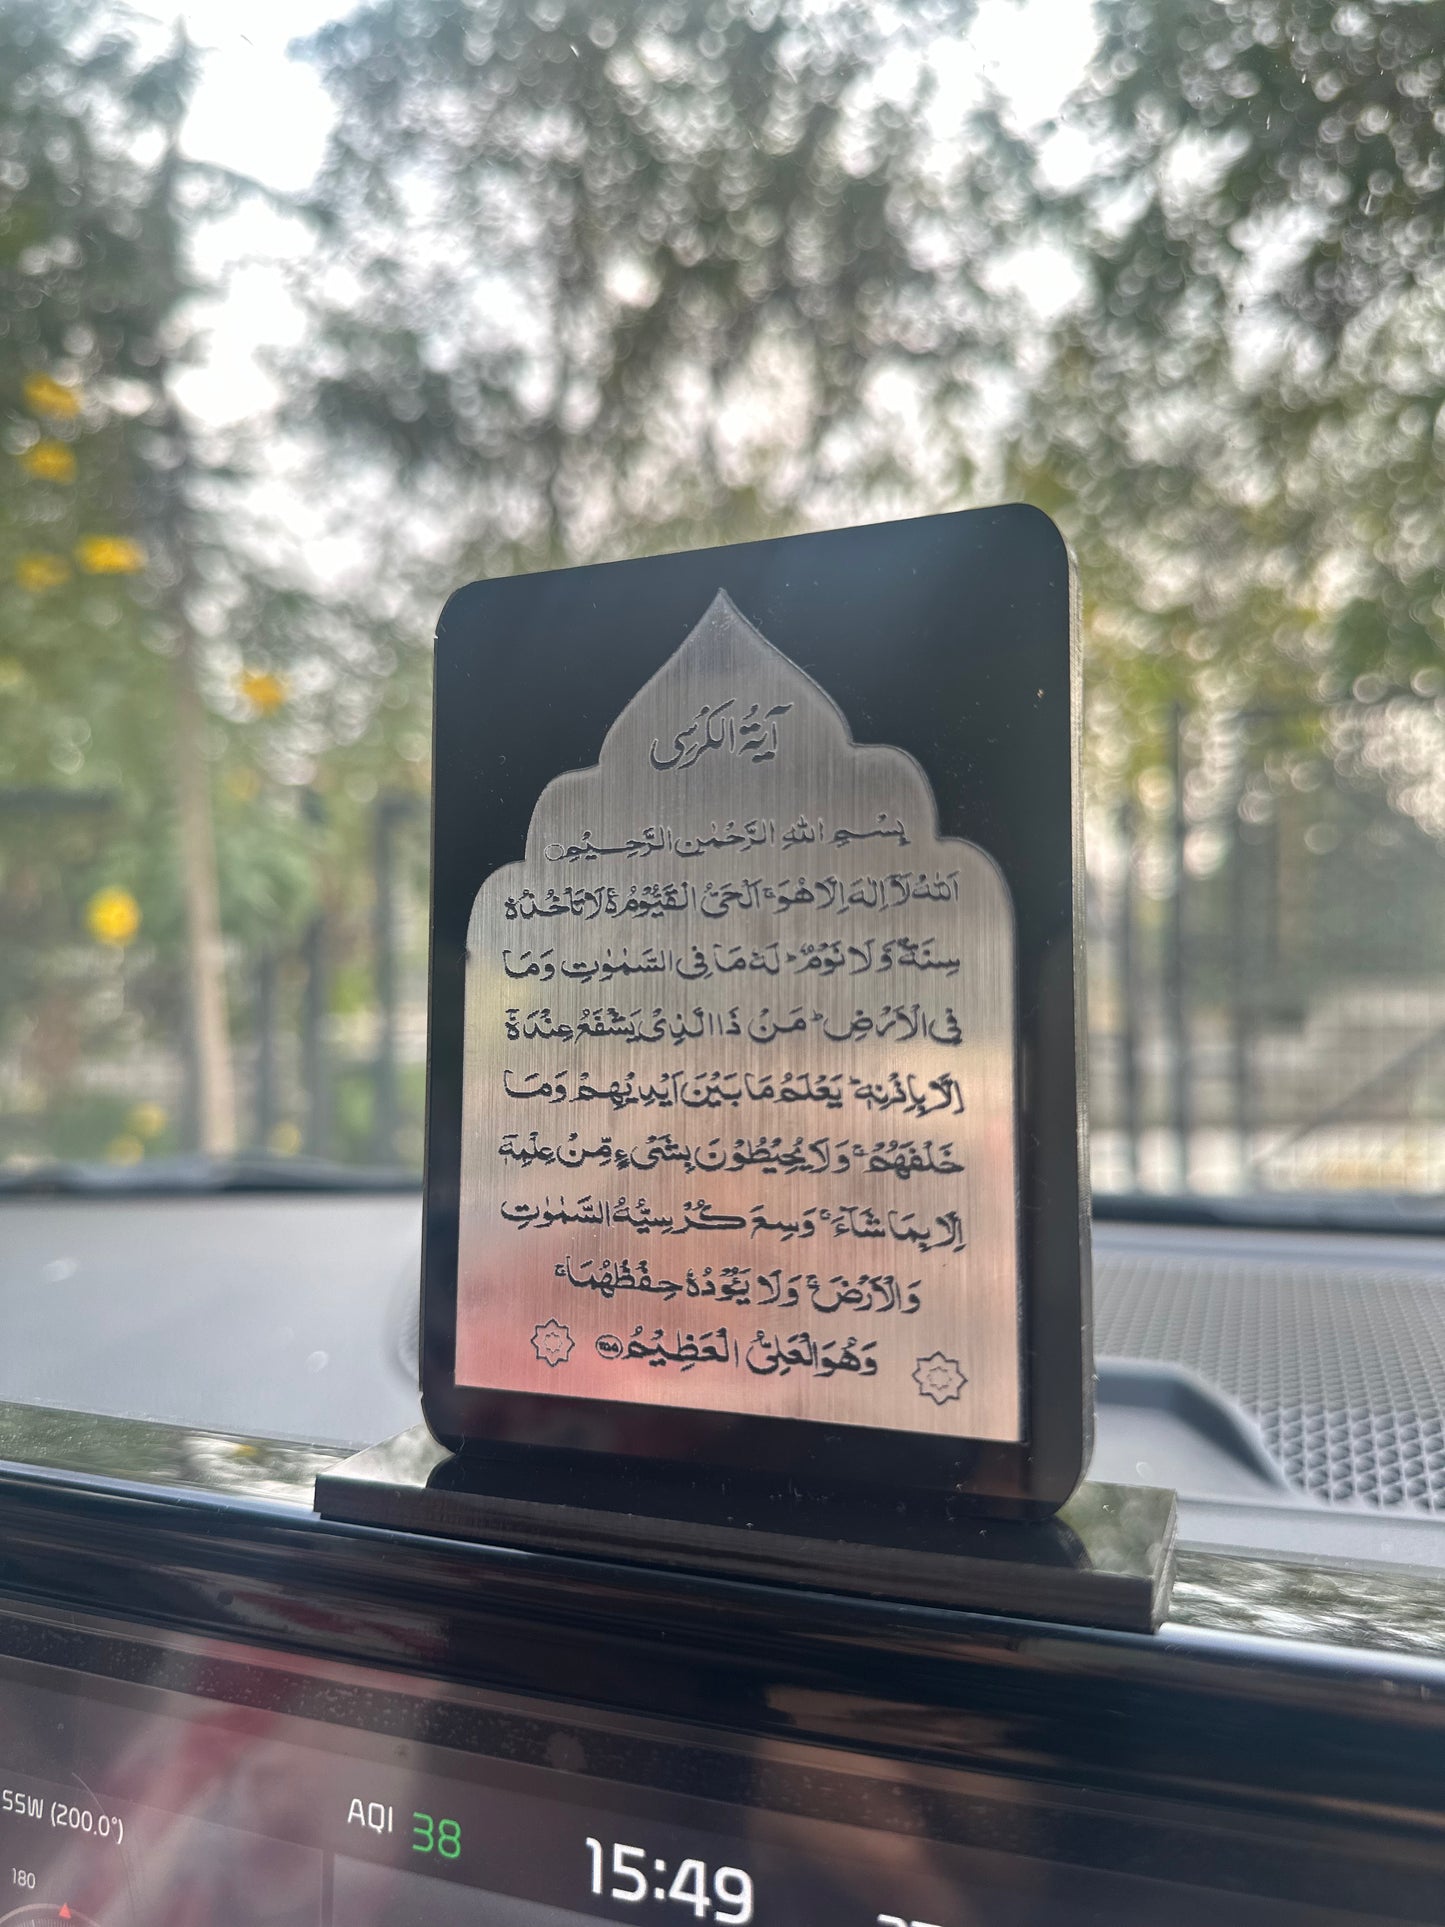 آيَةُ الكُرْسِى
بِسْمِ اللهِ الرَّحْمٰنِ الرَّحِيْمِ○
اَللهُ لَآ اِلٰهَ اِلَّا هُوَ ۚ اَلْحَىُّ الْقَيُّوْمُ ۚ لَا تَاْخُذُهٗ
سِنَةٌ وَّلَا نَوْمٌ ؕ لَهٗ مَا فِى السَّمٰوٰتِ وَمَا
فِى الْاَرْضِ ؕ مَنْ ذَا الَّذِىْ يَشْفَعُ عِنْدَهٗٓ
اِلَّا بِاِذْنِهٖ ؕ يَعْلَمُ مَا بَيْنَ اَيْدِيْهِمْ وَمَا
خَلْفَهُمْ ۚ وَلَا يُحِيْطُوْنَ بِشَىْءٍ مِّنْ عِلْمِهٖٓ
اِلَّا بِمَا شَآءَ ۚ وَسِعَ كُرْسِيُّهُ السَّمٰوٰتِ
وَالْاَرْضَ ۚ وَلَا يَـُٔوْدُهٗ حِفْظُهُمَا ۚ
وَهُوَ الْعَلِىُّ الْعَظِيْمُ ۝۲۵۵
SSW (200.0°)
AQI 38
180
15:49